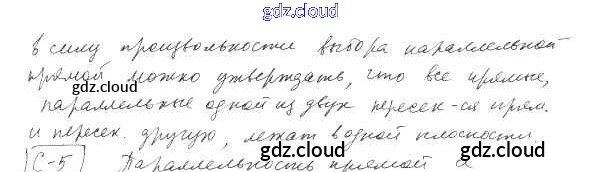 gdz.cloud
в силу произвольности выбора параллельной
прямой можно утверждать, что все прямые,
gdz.cloud gdz.cloud
параллельные одной из двух пересек-ся прям.
и пересек. другую, лежат в одной плоскости
gdz.cloud gdz.cloud
С-5 Параллельность прямой и